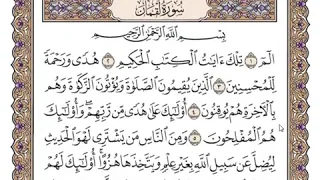 سُورَةُ لُقْمَان
بِسْمِ ٱللَّهِ ٱلرَّحْمَٰنِ ٱلرَّحِيمِ
الٓمٓ ١ تِلْكَ ءَايَٰتُ ٱلْكِتَٰبِ ٱلْحَكِيمِ ٢ هُدًى وَرَحْمَةً
لِّلْمُحْسِنِينَ ٣ ٱلَّذِينَ يُقِيمُونَ ٱلصَّلَوٰةَ وَيُؤْتُونَ ٱلزَّكَوٰةَ وَهُم
بِٱلْءَاخِرَةِ هُمْ يُوقِنُونَ ٤ أُو۟لَٰٓئِكَ عَلَىٰ هُدًى مِّن رَّبِّهِمْ ۖ وَأُو۟لَٰٓئِكَ
هُمُ ٱلْمُفْلِحُونَ ٥ وَمِنَ ٱلنَّاسِ مَن يَشْتَرِى لَهْوَ ٱلْحَدِيثِ
لِيُضِلَّ عَن سَبِيلِ ٱللَّهِ بِغَيْرِ عِلْمٍ وَيَتَّخِذَهَا هُزُوًا ۚ أُو۟لَٰٓئِكَ لَهُمْ